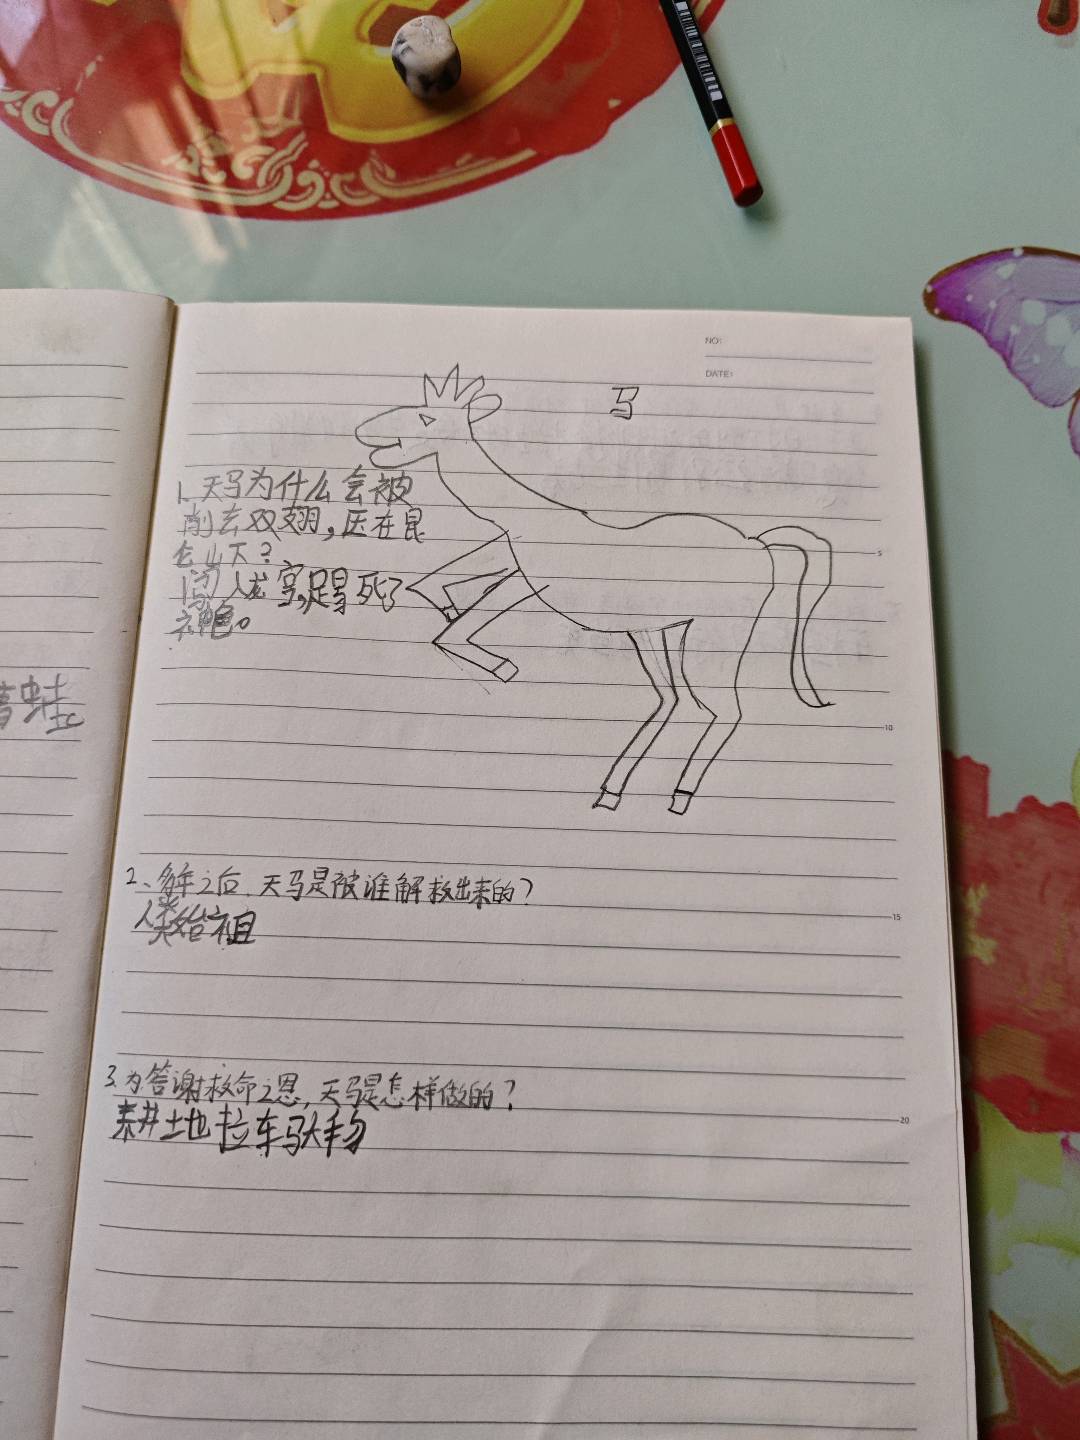 NO:
DATE:
马
1、天马为什么会被
削去双翅，压在昆
仑山下？
闯入龙宫，踢死了
神龟。
青蛙
5
10
2、多年之后，天马是被谁解救出来的？
人类始祖
15
3、为答谢救命之恩，天马是怎样做的？
耕土地 拉车驮物
20